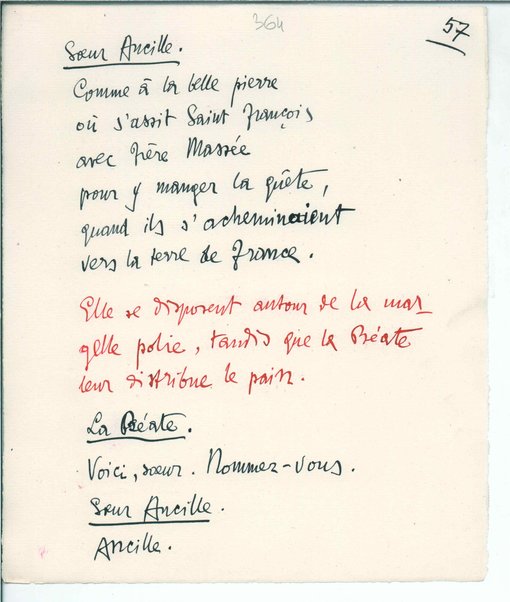 364
57
Sœur Ancille.
Comme à la belle pierre
où s'assit Saint François
avec Frère Massée
pour y manger la quête,
quand ils s'acheminaient
vers la terre de France.
Elle se disposent autour de la mar_
gelle polie, tandis que la Béate
leur distribue le pain.
La Béate.
Voici, sœur. Nommez-vous.
Sœur Ancille.
Ancille.